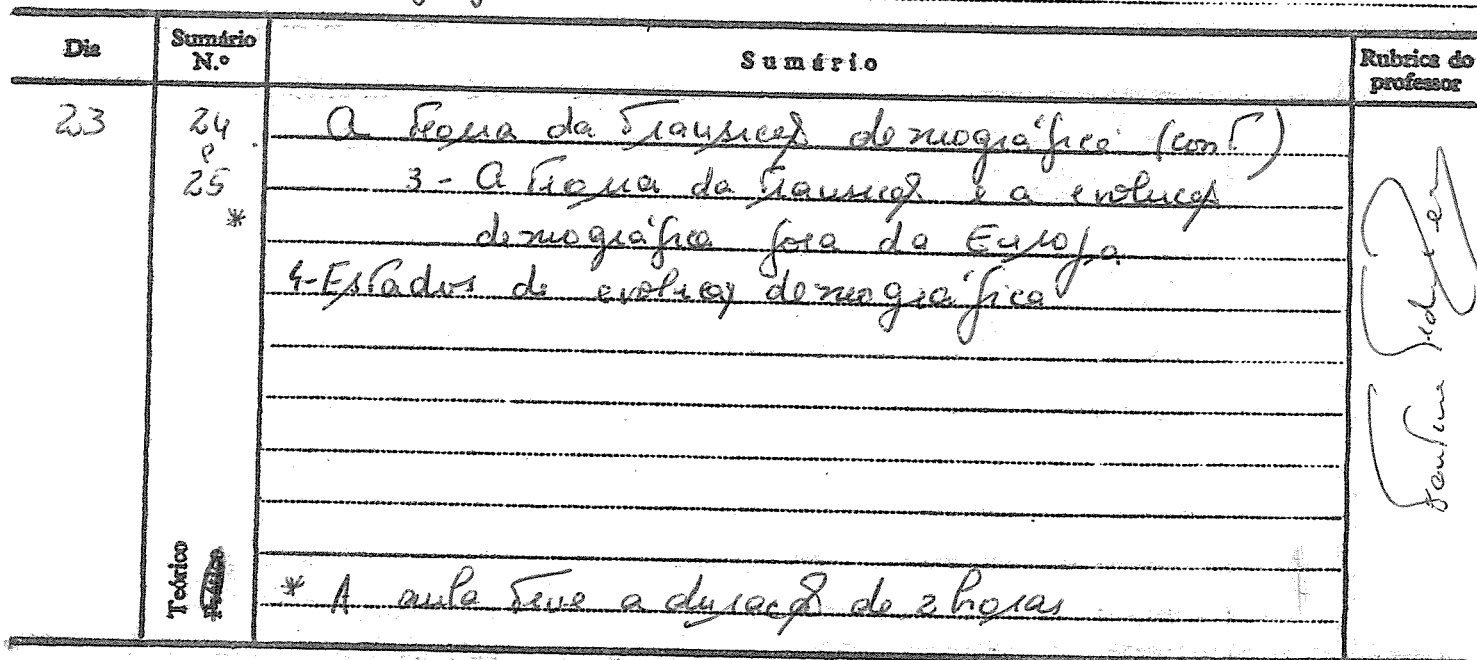 Dia
Sumário N.º
Sumário
Rubrica do professor
23
24
e
25
*
A teoria da transição demográfica (cont.)
3 - A teoria da transição e a evolução
demográfica fora da Europa
4 - Estados de evolução demográfica
Teórico
* A aula teve a duração de 2 horas